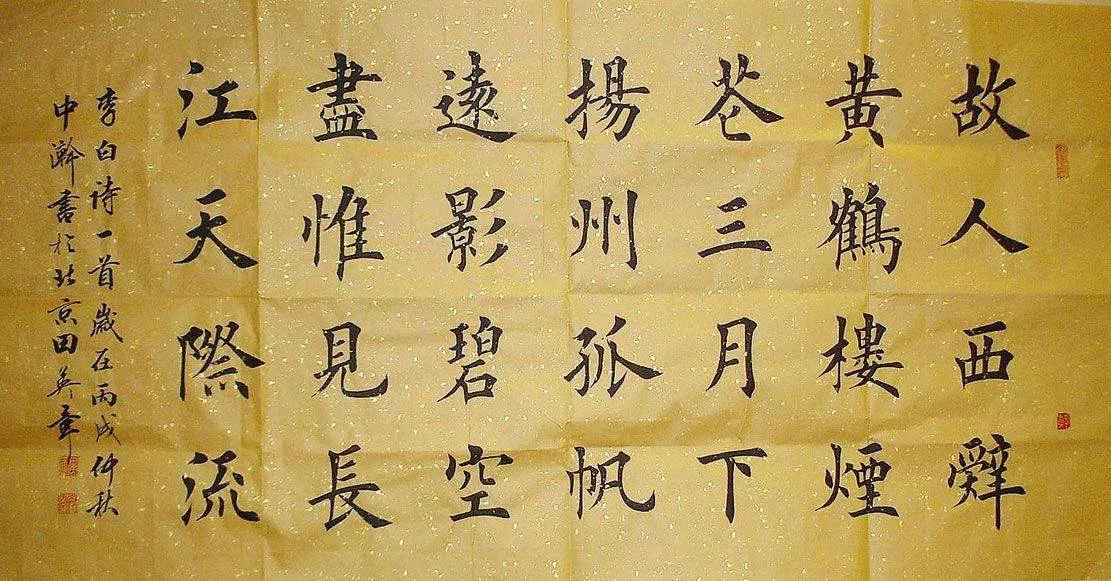 故人西辭
黄鶴樓煙
花三月下
揚州孤帆
遠影碧空
盡惟見長
江天際流
李白诗一首歲在丙戌仲秋
中澣書於北京田英章